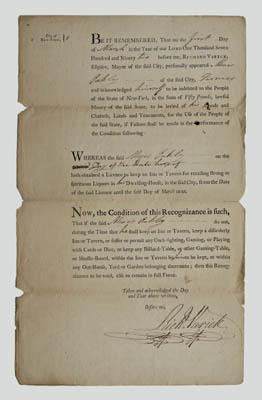 City of
New-York, } ss.
BE IT REMEMBERED, That on the first Day
of March in the Year of our LORD One Thousand Seven
Hundred and Ninety two before me, RICHARD VARICK,
Esquire, Mayor of the said City, personally appeared
of the said City,
and acknowledged himself to be indebted to the People
of the State of New-York, in the Sum of Fifty Pounds, lawful
Money of the said State, to be levied of his Goods and
Chattels, Lands and Tenements, for the Use of the People of
the said State, if Failure shall be made in the Performance of
the Condition following:
WHEREAS the said on the
Day of the
hath obtained a Licence to keep an Inn or Tavern for retailing strong or
spirituous Liquors in his Dwelling-House, in the said City, from the Date
of the said Licence until the first Day of March next.
NOW, the Condition of this Recognizance is such,
That if the said do not,
during the Time that he shall keep an Inn or Tavern, keep a disorderly
Inn or Tavern, or suffer or permit any Cock-fighting, Gaming, or Playing
with Cards or Dice, or keep any Billiard-Table, or other Gaming-Table,
or Shuffle-Board, within the Inn or Tavern by him to be kept, or within
any Out-House, Yard or Garden belonging thereunto; then this Recog-
nizance to be void, else to remain in full Force.
Taken and acknowledged the Day
and Year above written,
Before me,
Richd Varick